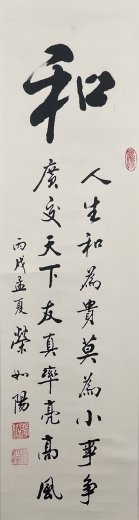 和
人生和為貴莫為小事爭
廣交天下友真率亮高風
丙戌孟夏 榮如陽